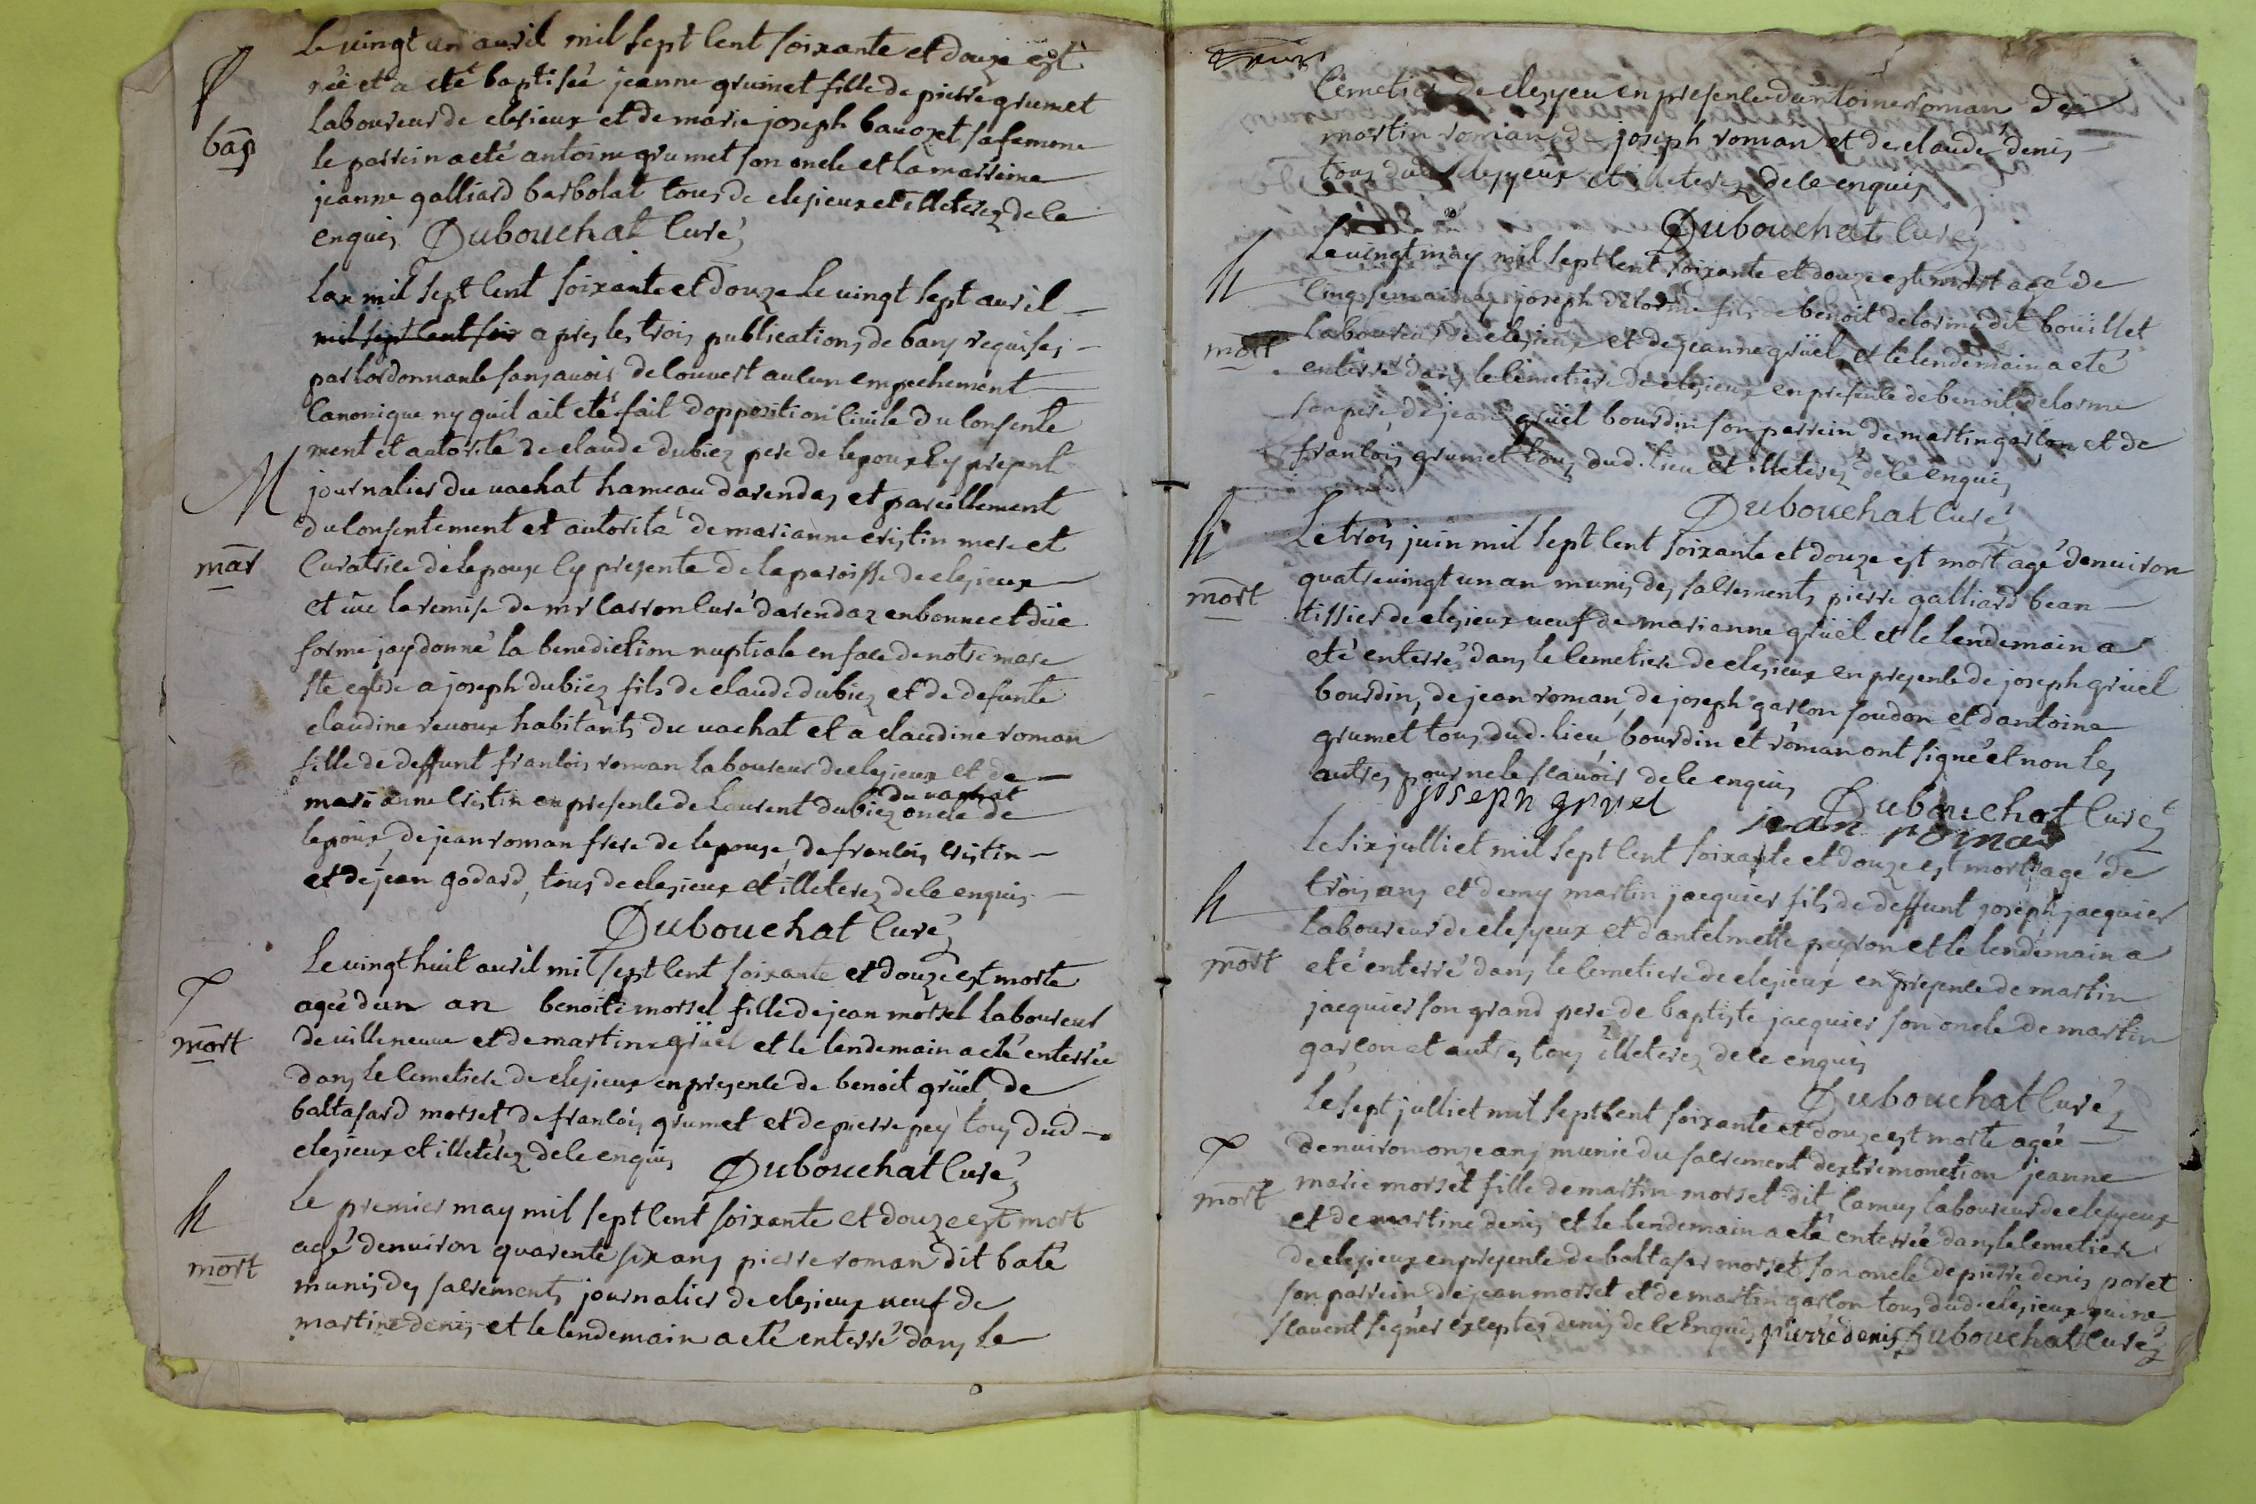 Le vingt un avril mil sept cent soixante et douze est
f
née et a eté baptisée jeanne grumet fille de pierre grumet
bap
laboureur de clesieux et de marie joseph bauozet sa femme
le parrein a eté antoine grumet son oncle et la marreine
jeanne galliard barbolat tous de clesieux et illeterez de ce
enquis Dubouchat Curé
Lan mil sept cent soixante et douze le vingt sept avril
mil sept cent soix apres les trois publications de bans requises
par lordonnance sans avoir decouvert aucun empechement
Canonique ny quil ait eté fait dopposition Civile du consente
ment et autorité de claude dubiez pere de lepoux Cy present
M
journalier du vachat hameau darendas et pareillement
du consentement et autorité de marianne cristin mere et
mar
Curatrice de lepouse Cy presente de la paroisse de clesieux
et vüe la remise de mr Carron Curé darendaz en bonne et düe
forme jay donné la benediction nuptiale en face de notre mere
ste eglise a joseph dubiez fils de claude dubiez et de defunte
claudine revoux habitants du vachat et a claudine roman
fille de deffunt francois roman laboureur de clesieux et de
du vachat
marianne Cristin en presence de laurent dubiez oncle de
lepoux, de jean roman frere de lepouse, de francois Cristin
et de jean godard, tous de clesieux et illeterez de ce enquis
Dubouchat Curé
Le vingt huit avril mil sept cent soixante et douze est morte
f
agée dun an benoite morsel fille de jean morsel laboureur
mort
de villeneuve et de martine grüel et le lendemain a eté enterrée
dans le Cemetiere de clesieux en presence de benoit grüel de
baltasard morset, de francois grumet et de pierre pey tous dud
clesieux et illeterez de ce enquis Dubouchat Curé
h
Le premier may mil sept cent soixante et douze est mort
agé denviron quarente six ans pierre roman dit baté
mort
munis des sacrements journalier de clesieux veuf de
martine denis et le lendemain a eté enterré dans le
Cemetier de clesyeu en presence dantoine roman de
martin roman de joseph roman et de claude denis
tous dud clesyeux et illeterez de ce enquis
Dubouchat Curé
h
Le vingt may mil sept cent soixante et douze est mort agé de
Cinq semaines joseph delorme fils de benoit delorme dit bouillet
mort
laboureur de clesieux et de jeanne grüel et le lendemain a eté
enterré dans le Cemetiere de clesieux en presence de benoit delorme
son pere, de jean grüel bourdin son parrein de martin garcon et de
francois grumet tous dud. lieu et illeterez de ce enquis
Dubouchat Curé
h
Le trois juin mil sept cent soixante et douze est mort agé denviron
mort
quatrevingt un an munis des sacrements pierre galliard bean
tissier de clesieux veuf de marianne grüel et le lendemain a
eté enterré dans le Cemetiere de clesieux en presence de joseph grüel
bourdin, de jean roman, de joseph garcon foudon et dantoine
grumet tous dud. lieu, bourdin et roman ont signé et non les
autres pour ne le scavoir de ce enquis
joseph gruel Dubouchat Curé
jean roman
Le six julliet mil sept cent soixante et douze est mort agé de
h
trois ans et demy martin jacquier fils de deffunt joseph jacquier
laboureur de clesyeux et dantelmette peyron et le lendemain a
mort
eté enterré dans le Cemetiere de clesieux en presence de martin
jacquier son grand pere de baptiste jacquier son oncle de martin
garcon et autres tous illeterez de ce enquis
Dubouchat Curé
Le sept julliet mil sept cent soixante et douze est morte agée
f
denviron onze ans munie du sacrement dextremonction jeanne
mort
marie morset fille de martin morset dit Camus laboureur de clesyeux
et de martine denis et le lendemain a eté enterrée dans le Cemetiere
de clesieux en presence de baltasar morset son oncle de pierre denis poret
son parrein de jean morset et de martin garcon tous dud. clesieux qui ne
scavent signer excepter denis de ce enquis pierre denis Dubouchat Curé